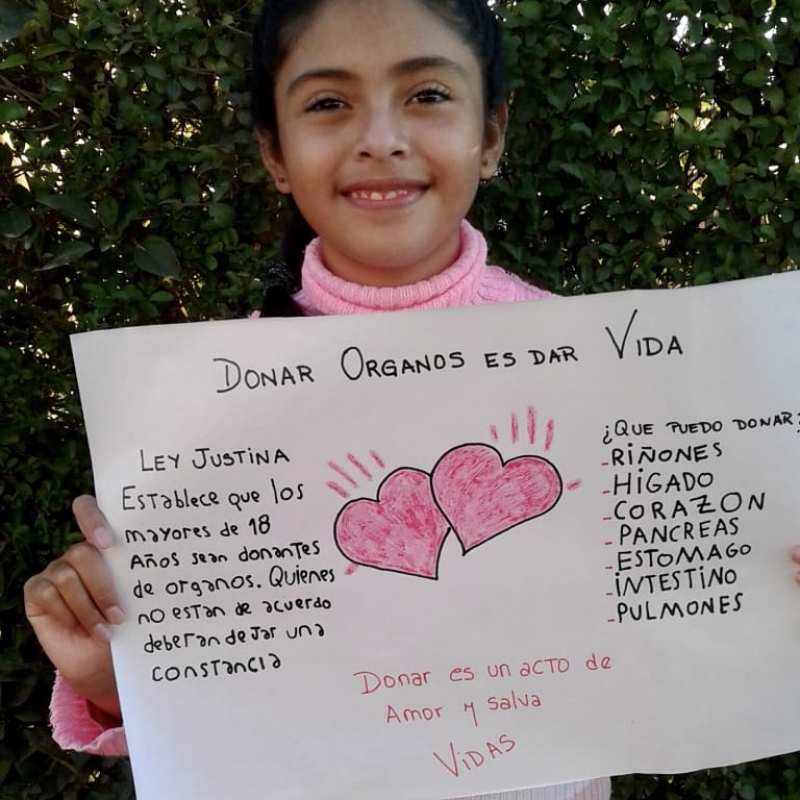 DONAR ORGANOS ES DAR VIDA
LEY JUSTINA
Establece que los
mayores de 18
Años sean donantes
de organos. Quienes
no estan de acuerdo
deberan dejar una
constancia
¿QUE PUEDO DONAR?
-RIÑONES
-HIGADO
-CORAZON
-PANCREAS
-ESTOMAGO
-INTESTINO
-PULMONES
Donar es un acto de
Amor y salva
VIDAS